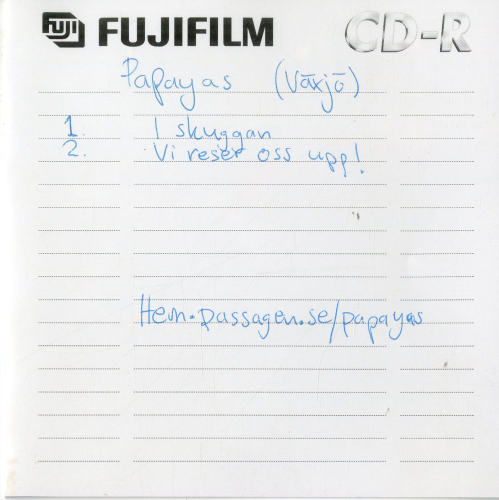 FUJI FUJIFILM CD-R
Papayas (Växjö)
1. I skuggan
2. Vi reser oss upp!
Hem.passagen.se/papayas